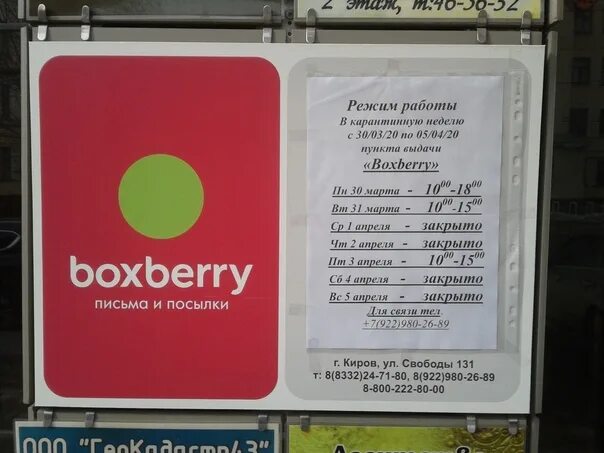 2 этаж, т:46-56-52
boxberry
письма и посылки
Режим работы
В карантинную неделю
с 30/03/20 по 05/04/20
пункта выдачи
«Boxberry»
Пн 30 марта - 10⁰⁰-18⁰⁰
Вт 31 марта - 10⁰⁰-15⁰⁰
Ср 1 апреля - закрыто
Чт 2 апреля - закрыто
Пт 3 апреля - 10⁰⁰-15⁰⁰
Сб 4 апреля - закрыто
Вс 5 апреля - закрыто
Для связи тел.
+7(922)980-26-89
г. Киров, ул. Свободы 131
т: 8(8332)24-71-80, 8(922)980-26-89
8-800-222-80-00
ООО "ГеоКадастр43"